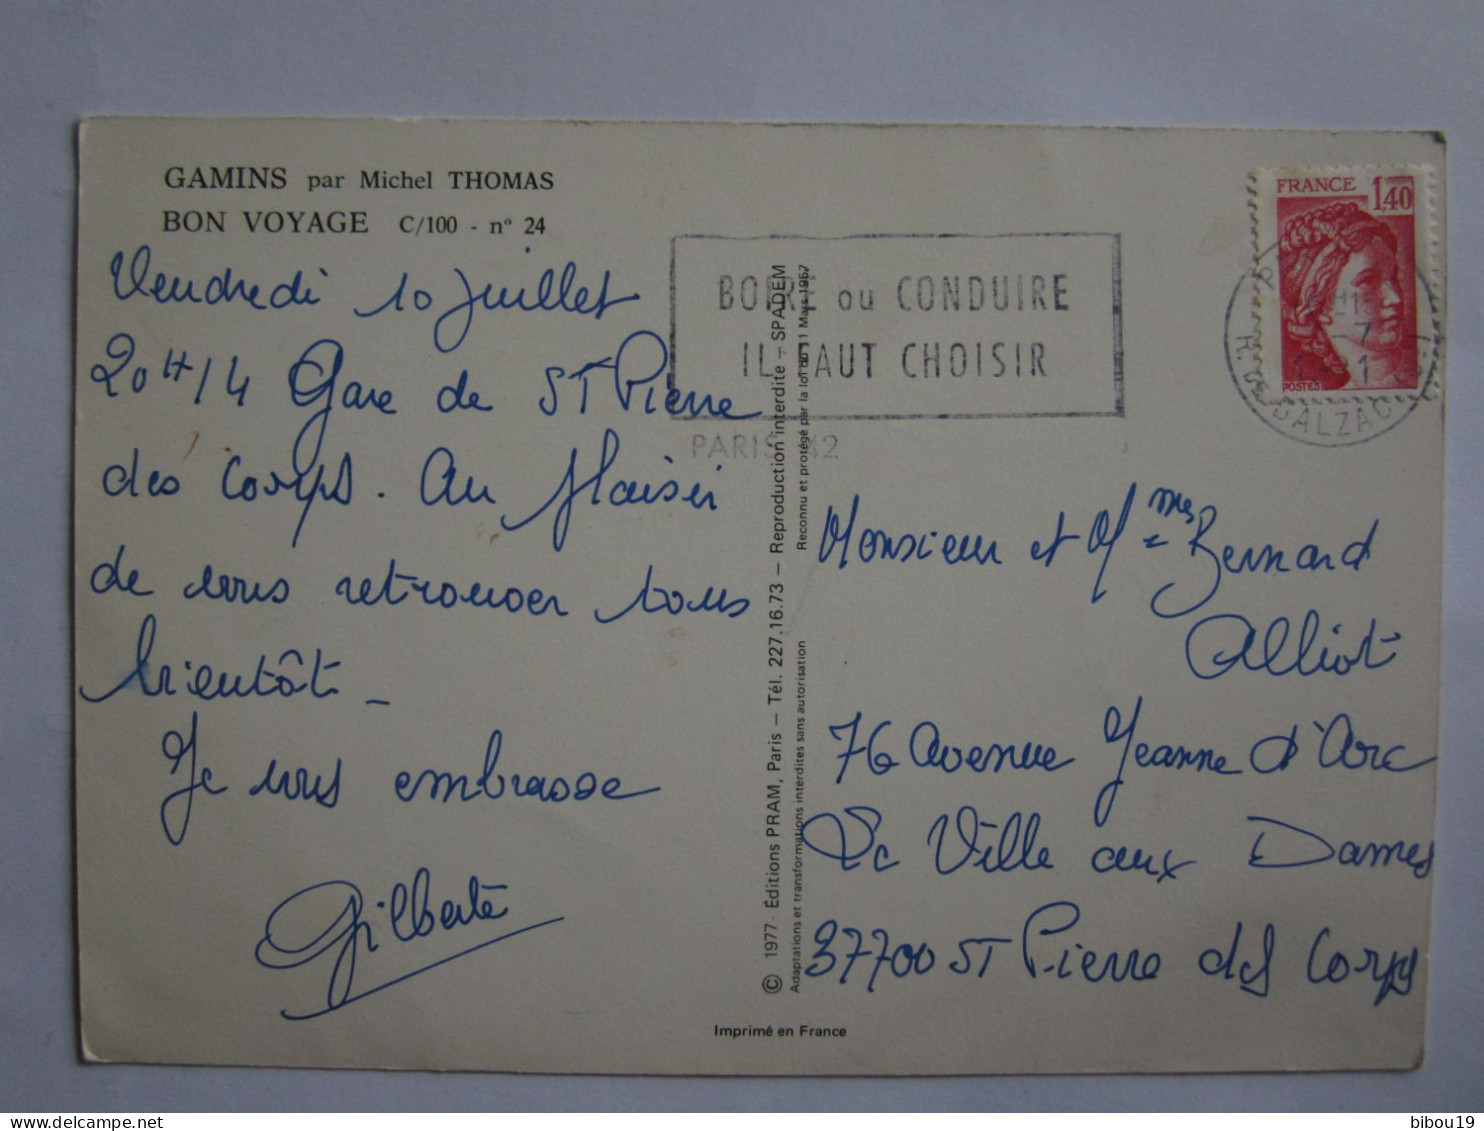 GAMINS par Michel THOMAS
BON VOYAGE C/100 - n° 24
Vendredi 10 juillet
20H14 Gare de ST Pierre
des Corps. Au plaisir
de vous retrouver tous
bientôt -
Je vous embrasse
Gilberte
BOIRE ou CONDUIRE
IL FAUT CHOISIR
PARIS 42
FRANCE 1,40
POSTES
BALZAC
© 1977 - Éditions PRAM, Paris - Tél. 227.16.73 - Reproduction interdite - SPADEM
Adaptations et transformations interdites sans autorisation
Reconnu et protégé par la loi du 11 Mars 1957
Monsieur et Mmes Bernard
Alliot
76 Avenue Jeanne d'Arc
La Ville aux Dames
37700 ST Pierre des Corps
Imprimé en France
bibou19